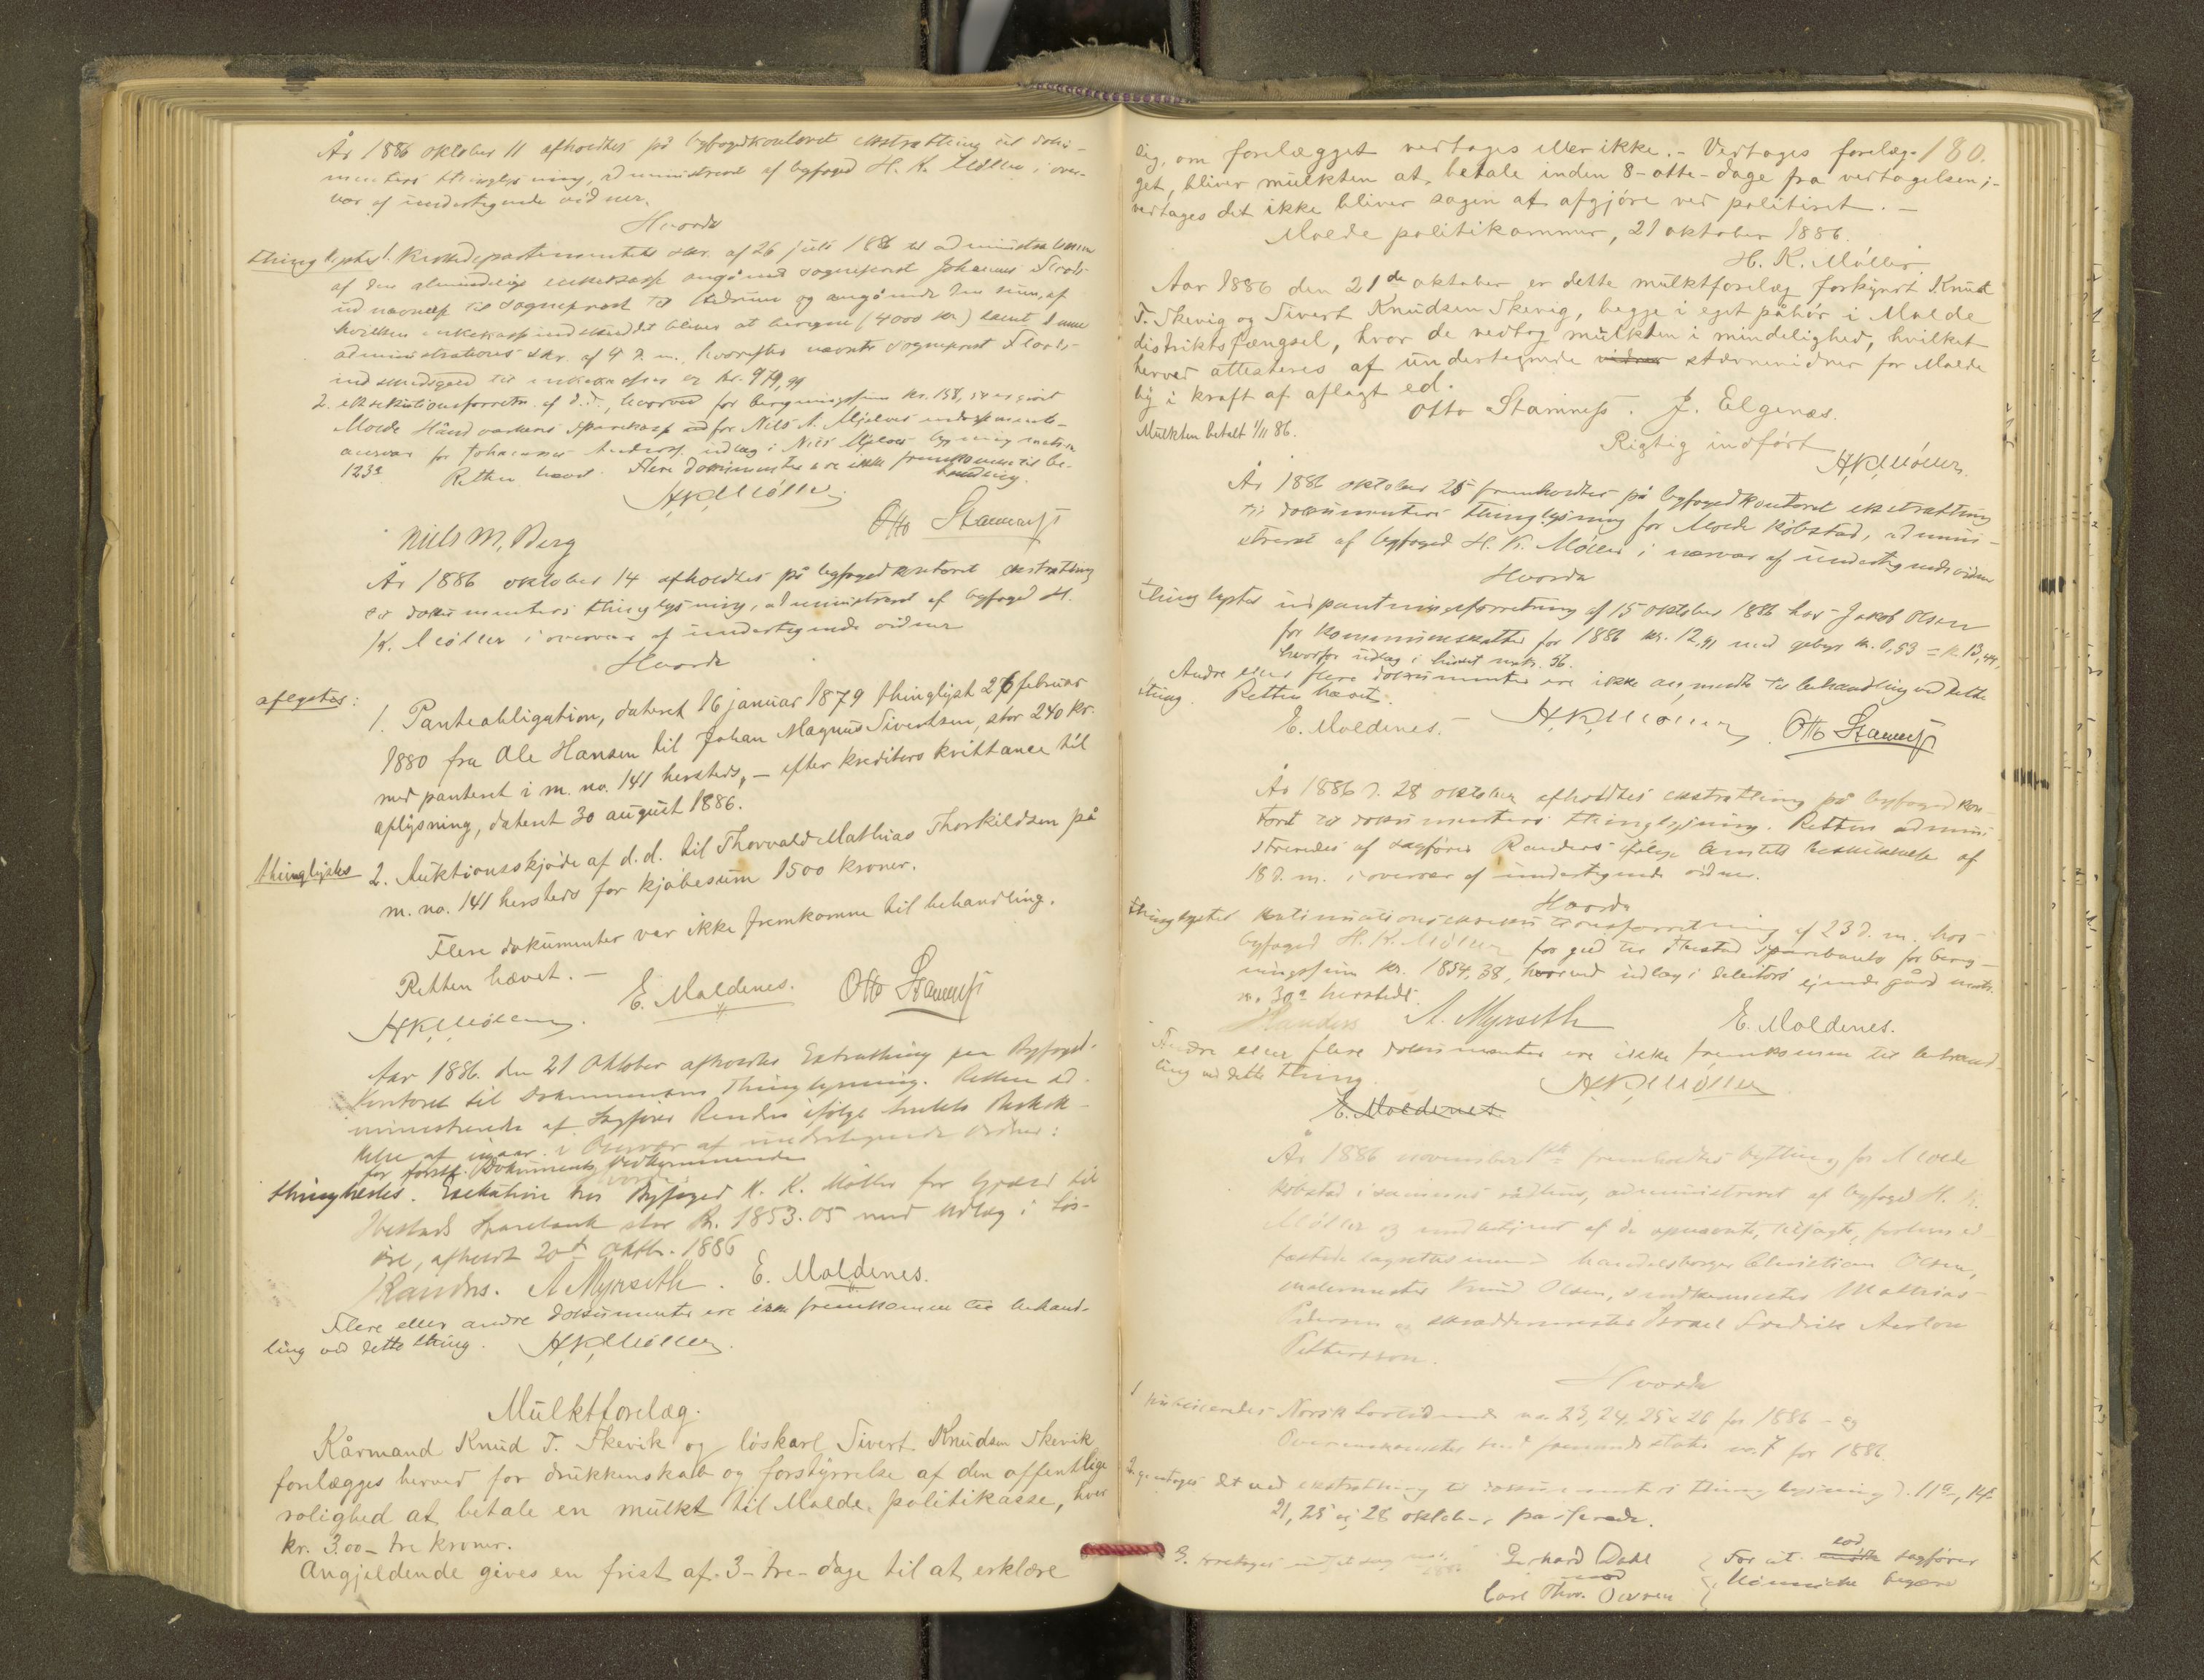 År 1886 oktober 11 afholdtes på byfogedkontoret ekstratting til doku-
menters thinglysning, administreret af byfoged H. K. Møller i over-
vær af undertegnede vidner.
Hvorda
thinglystes 1. Kirkedepartementets skr. af 26 juli 1886 til administrationen
af den almindelige enkekasse angående sogneprest Johannes
udnævnelse til sogneprest til og angående den sum, af
hvilken enkekasseindskuddet bliver at beregne (4000 kr.) samt denne
administrations skr. af 4 d. m., hvorefter nævnte sogneprest
indskudsgæld til enkekassen er kr. 979,99
2. eksekutionsforretn. af d. d., hvorved for kr. 158,
Molde Håndværkeres Sparekasse for Nils A. Mjelves
ansvar for Johannes udlæg i Nils Mjelves bygning matr. n.
123a Retten hævet. Flere dokumenter ere ikke fremkomne til be-
handling.
H.K. Møller
Niels M. Berg Otto Stamnes
År 1886 oktober 14 afholdtes på byfogedkontoret ekstratting
til dokumenters thinglysning, administreret af byfoged H.
K. Møller i overvær af undertegnede vidner
Hvorda
aflystes:
1. Panteobligation, dateret 16 januar 1879 thinglyst 26 februar
1880 fra Ole Hansen til Johan Magnus Sivertsen, stor 240 kr.
med panteret i m. no. 141 hersteds, – efter kreditors kvittance til
aflysning, dateret 30 august 1886.
thinglystes 2. Auktionsskjøde af d. d. til Thorvald Mathias Thorkildsen på
m. no. 141 hersteds for kjøbesum 1500 kroner.
Flere dokumenter var ikke fremkomne til behandling.
Retten hævet. –
H.K. Møller E. Moldenes. Otto Stamnes
Aar 1886. den 21 Oktober afholdtes Extrathing paa Byfoged-
Kontoret til Dokumenters Thinglysning. Retten ad-
ministreredes af Sagfører Randers ifølge Amtets Beskik-
kelse af igaar i Overvær af undertegnede Vidner:
for førstk. Dokuments Vedkommende
Hvorda
thinglystes. Exekution hos Byfoged H. K. Møller for Gjæld til
Thestads Sparebank stor Kr. 1853.05 med Udlæg i Løs-
øre, afholdt 20de Oktbr. 1886
Randers. A Myrseth. E. Moldenes.
Flere eller andre dokumenter ere ikke fremkomne til behand-
ling ved dette thing. H.K. Møller.
Mulktforelæg.
Kårmand Knud T. Skevik og løskarl Sivert Knudsen Skevik
forelægges herved for drukkenskab og forstyrrelse af den offentlige
rolighed at betale en mulkt til Molde politikasse, hver
kr. 3.00 – tre kroner.
Angjeldende gives en frist af 3 – tre – dage til at erklære
180.
sig, om forelægget vedtages eller ikke. – Vedtages forelæg-
get, bliver mulkten at betale inden 8 – otte – dage fra vedtagelsen; –
vedtages det ikke bliver sagen at afgjøre ved politiret. –
Molde politikammer, 21 oktober 1886.
H. K. Møller.
Aar 1886 den 21de oktober er dette mulktforelæg forkyndt Knud
T. Skevig og Sivert Knudsen Skevig, begge i eget påhør i Molde
distriktsfængsel, hvor de vedtog mulkten i mindelighed, hvilket
herved attesteres af undertegnede vidner stævnevidner for Molde
by i kraft af aflagt ed.
Otto Stamnes. J. Elgenæs.
Mulkten betalt 1/11 86.
Rigtig indført
H.K. Møller.
År 1886 oktober 25 fremholdtes på byfogedkontoret ekstratting
til dokumenters thinglysning for Molde købstad, admini-
streret af byfoged H. K. Møller i nærvær af undertegnede vidner
Hvorda
thinglystes udpantningsforretning af 15 oktober 1886 hos Jakob Olsen
for kommuneskatter for 1886 kr. 12,91 med gebyr kr. 0,53 = kr. 13,44,
hvorfor udlæg i huset matr. 56.
Andre eller flere dokumenter ere ikke anmeldte til behandling ved dette
thing. Retten hævet.
E. Moldenes. H.K. Møller Otto Stamnes
År 1886 d. 28 oktober afholdtes ekstratting på byfogedkon-
toret til dokumenters thinglysning. Retten admini-
streredes af sagfører Randers ifølge amtets beskikkelse af
18 d. m. i overvær af undertegnede vidner.
Hvorda
thinglystes kontinuationseksekutionsforretning af 23 d. m. hos
byfoged H. K. Møller for gjæld til Thestad Sparebank for bereg-
ningssum kr. 1854,38, hvorved udlæg i debitors ejende gård matr.
n. 30a hersteds.
Randers A. Myrseth E. Moldenes.
Andre eller flere dokumenter ere ikke fremkomne til behand-
ling ved dette thing.
H.K. Møller
E. Moldenes.
År 1886 november 1ste fremholdtes bytting for Molde
købstad i sammes rådhus, administreret af byfoged H. K.
Møller og medbetjent af de opnævnte, tilsagte, forhen ed-
fæstede lagrettesmænd handelsborger Christian Olsen,
malermester Knud Olsen, snedkermester Mathias
Pedersen og skræddermester Israel Fredrik
Pettersson.
Hvorda
1 publiceredes Norsk Lovtidende no. 23, 24, 25 & 26 for 1886 – og
Overenskomster med fremmede stater no. 7 for 1886.
2. det ved ekstratting til dokumenters thinglysning d. 11te, 14de
21, 25 og 28 oktober passerede.
3. foretoges
Gerhard Dahl
mod
Carl Thor.
For cit. ved sagfører
begære